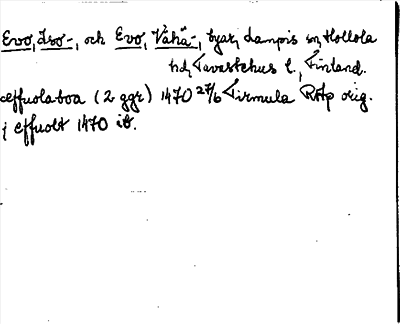 Evo, Iso-, och Evo, Vähä-, byar, Lampis sn, Hollola
hd, Tavastehus l., Finland.
æffuolaboa (2 ggr) 1470 27/6 Firmula RAp orig.
j effuolt 1470 ib.